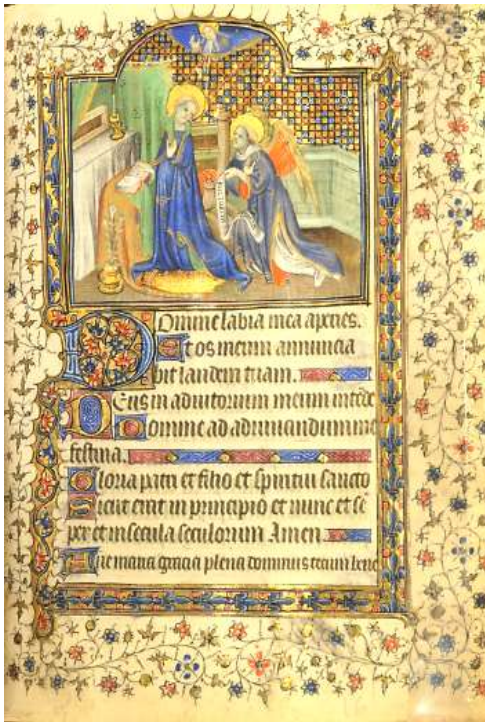 Domine labia mea aperies.
Et os meum annuncia
bit laudem tuam.
Deus in adiutorium meum intede
Domine ad adiuuandum me
festina.
Gloria patri et filio et spiritui sancto
Sicut erat in principio et nunc et se
per et in secula seculorum Amen
Aue maria gracia plena dominus tecum bene